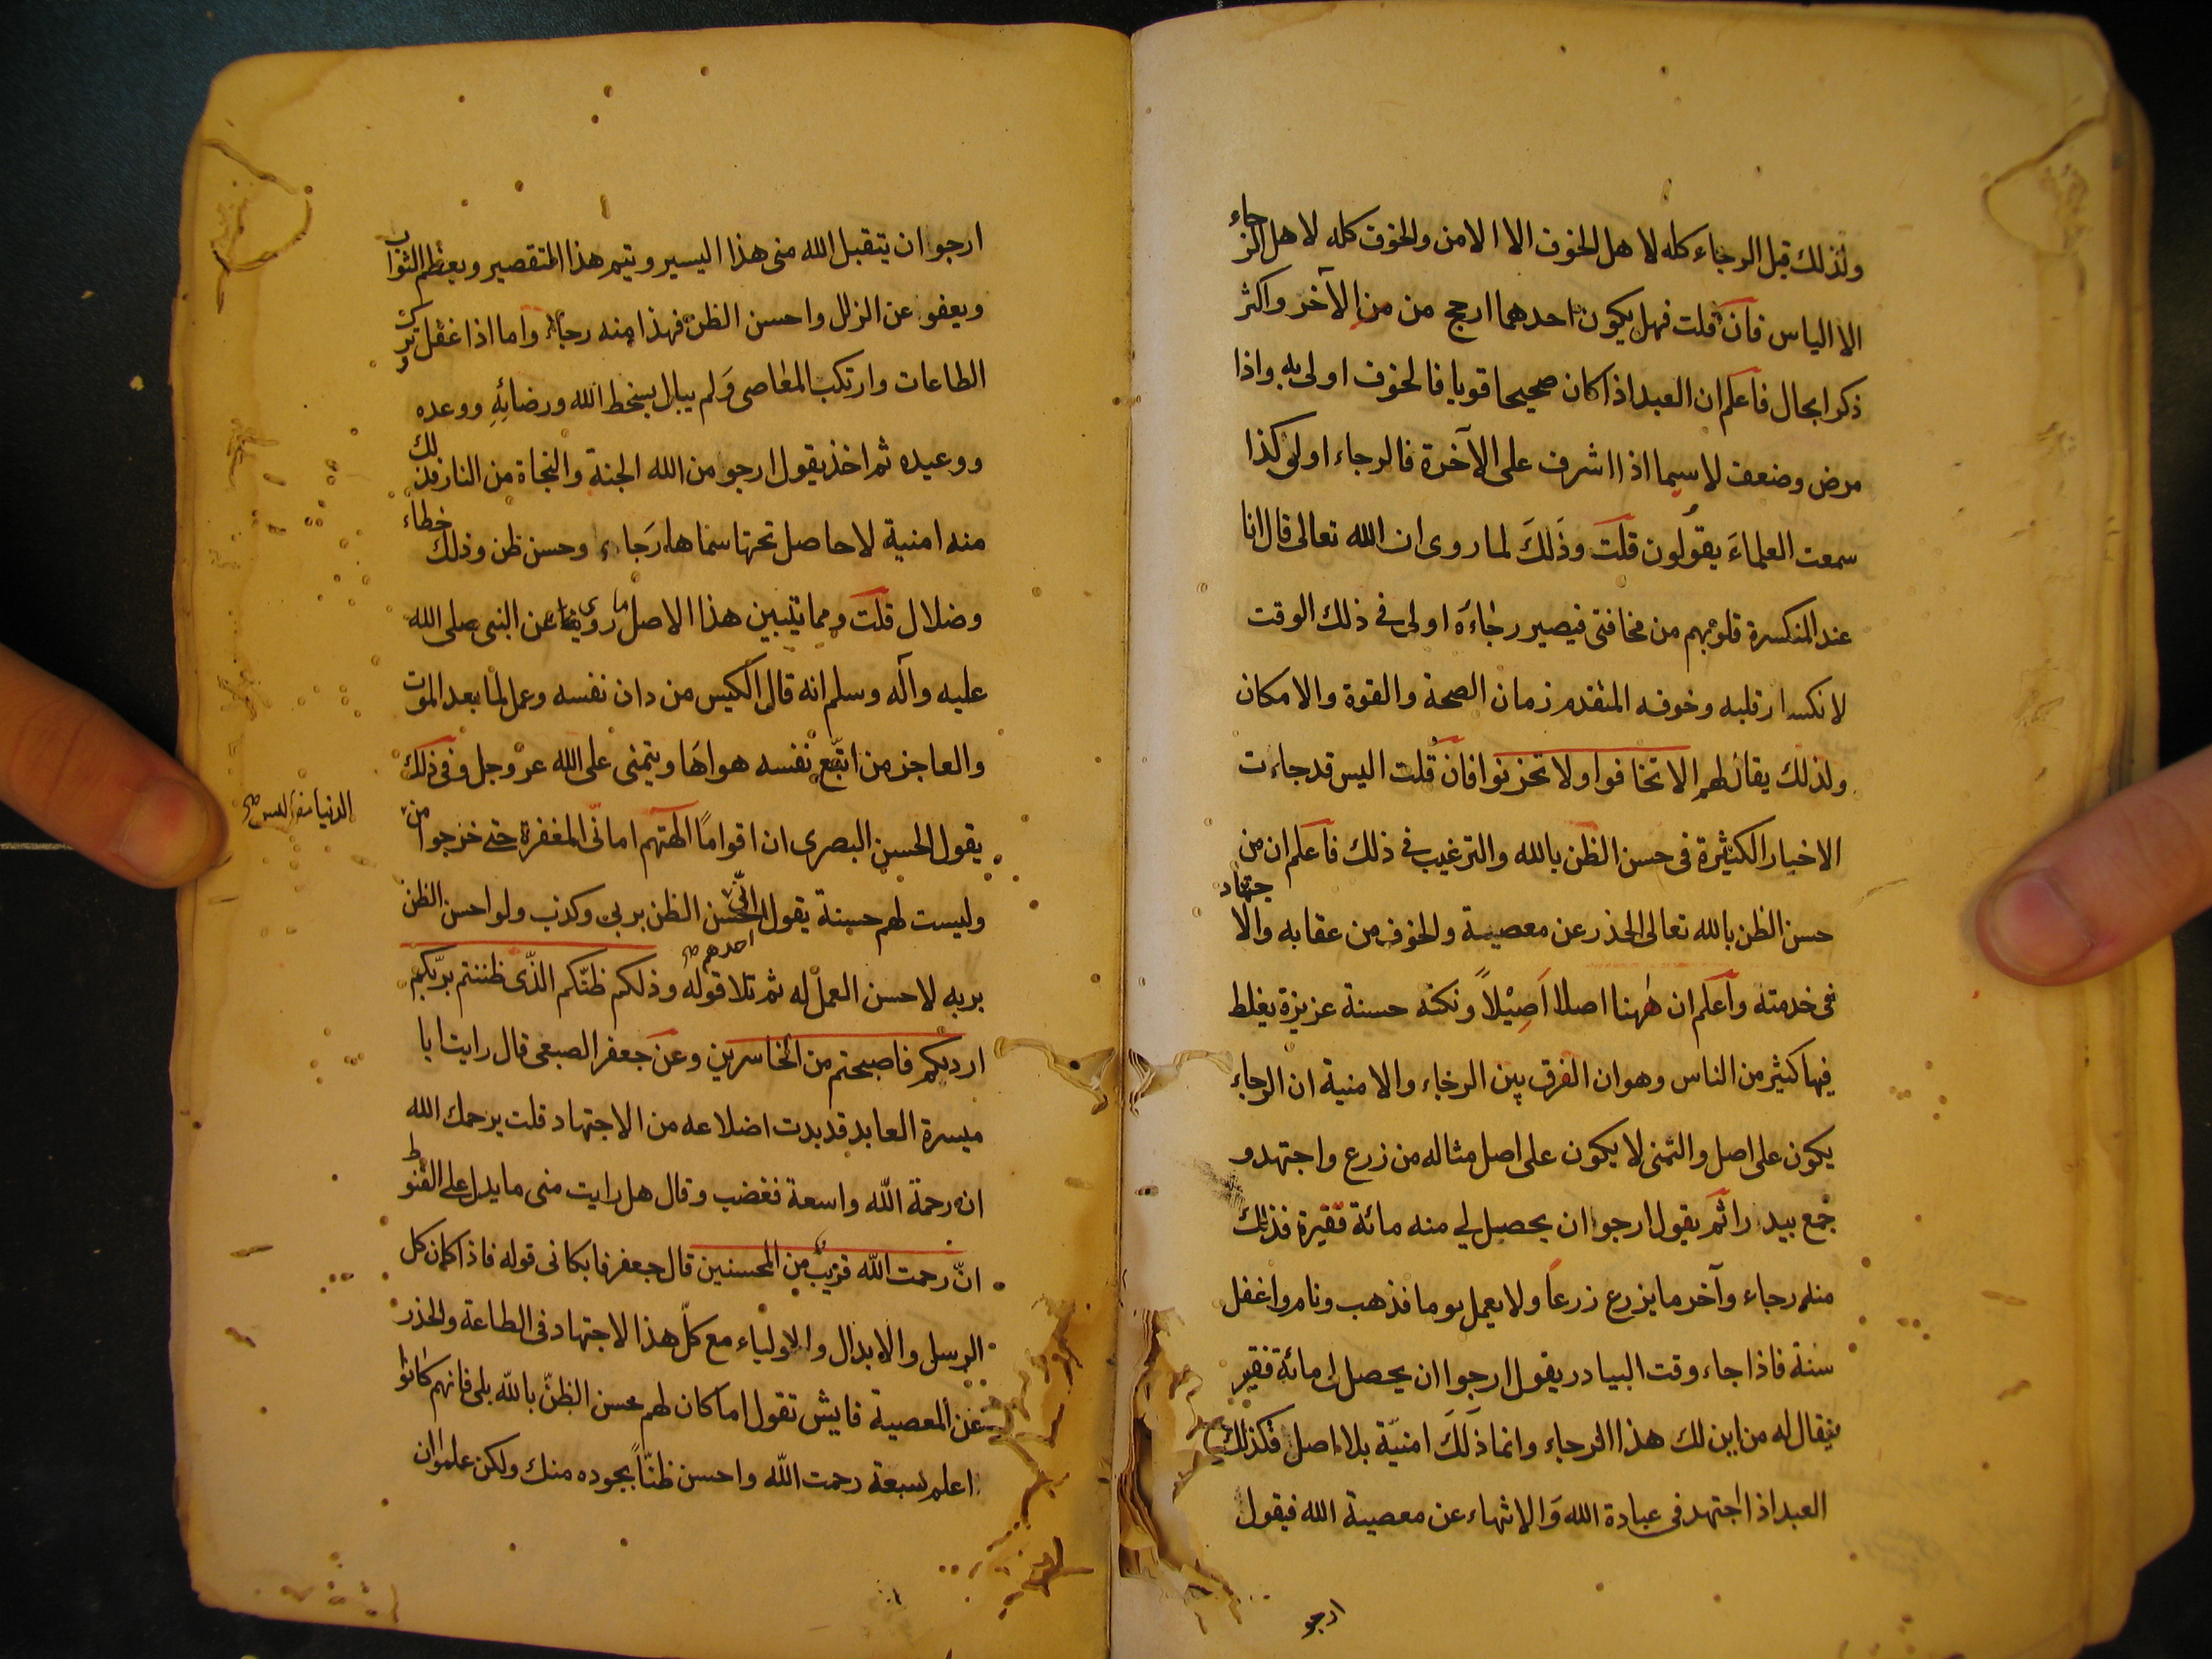 ولذلك قيل الرجاء كله لاهل الخوف الا الامن والخوف كله لاهل الرجاء
الا الياس فان قلت فهل يكون احدهما ارجح من من الآخر واكثر
ذكرا بحال فاعلم ان العبد اذا كان صحيحا قويا فالخوف اولى به واذا
مرض وضعف لاسيما اذا اشرف على الآخرة فالرجاء اولى كذا
سمعت العلماءَ يقولون قلت وذَلكَ لما روى ان الله تعالى قال انا
عند المنكسرة قلوبهم من مخافتى فيصير رجاءَه اولى فى ذلك الوقت
لانكسار قلبه وخوفه المتقدم زمان الصحة والقوة والامكان
ولذلك يقال لهم الا تخافوا ولا تحزنوا فان قُلت اليس قد جاءت
الاخبار الكثيرة فى حسن الظن بالله والترغيب فى ذلك فاعلم ان من
حسن الظن بالله تعالى الحذر عن معصية والخوف من عقابه والاجتهاد
فى خدمته واعلم ان هٰهنا اصلا اَصِيْلاً ونكته حسنة عزيزة يغلط
فيها كثير من الناس وهو ان الفرق بين الرخاء والامنية ان الرجاء
يكون على اصل والتمنى لا يكون على اصل مثاله من زرع واجتهد و
جمع بيدرا ثم يقول ارجوا ان يحصل لي منه مائة قفيزة فذلك
منه رجاء وآخر ما يزرع زرعاً ولا يعمل يوما فذهب ونام واغفل
سنة فاذا جاء وقت البيادر يقول ارجوا ان يحصل لى مائة قفيز
فيقال له من اين لك هذا الرجاء وانما ذَلكَ امنيّة بلا اصل فكذلك
العبد اذا اجتهد فى عبادة الله وَالانتهاء عن معصية الله فيقول
ارجو
ارجوا ان يتقبل الله منى هذا اليسير ويتيم هذا التقصير ويعظم الثواب
ويعفو عن الزلل واحسن الظن فهذا منه رجاء واما اذا غفل وترك
الطاعات وارتكب المعاصى وَلم يبال بسخط الله ورضائِهِ ووعده
ووعيده ثم اخذ يقول ارجو من الله الجنة والنجاة من النار فذلك
منه امنية لا حاصل تحتها سماها رَجاء وحسن ظن وذلك خطاء
وضلال قلت ومما يتبين هذا الاصل ما روى عن النبى صلى الله
عليه وآله وسلم انه قال الكيس من دان نفسه وعمل لما بعد الموت
والعاجز من اتّبع نفسه هواهَا ويتمنى على الله عز وجل وفى ذلك
يقول الحسن البصرى ان اقواماً الهتهم امانّى المغفرة حتى خرجوا من
الدنيا
وليست لهم حسنة يقول احدهم انّى احسن الظن بربى وكذب ولو احسن الظن
بربه لاحسن العمل له ثم تلا قوله وذلكم ظنّكم الذّى ظننتم بربّكم
ارديكم فاصبحتم من الخاسرين وعن جعفر الصبعى قال رايت ابا
ميسرة العابد قد بدت اضلاعه من الاجتهاد قلت يرحمك الله
ان رحمة اللّه واسعة فغضب وقال هل رايت منى ما يدل على القنوط
انّ رحمت اللّه قريب من المحسنين قال جعفر فابكانى قوله فاذا كان كل
الرسل والابدال والاولياء مع كلّ هذا الاجتهاد فى الطاعة والحذر
عن المعصية فايش تقول اما كان لهم حسن الظنّ باللّه بلى فانهم كانوا
اعلم بسعة رحمت اللّه واحسن ظنّاً بجوده منك ولكن علموا ان